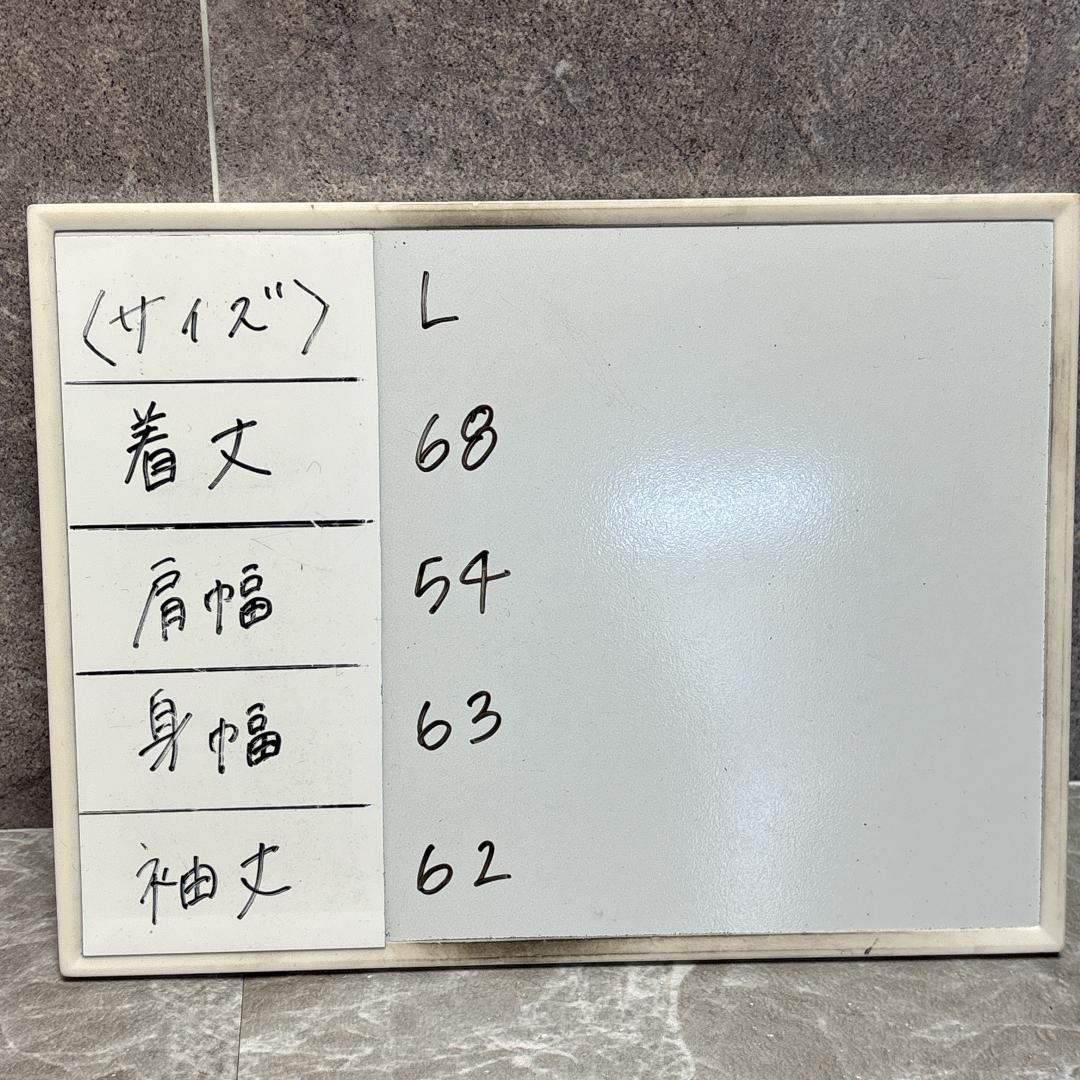 〈サイズ〉 L
着丈 68
肩幅 54
身幅 63
袖丈 62